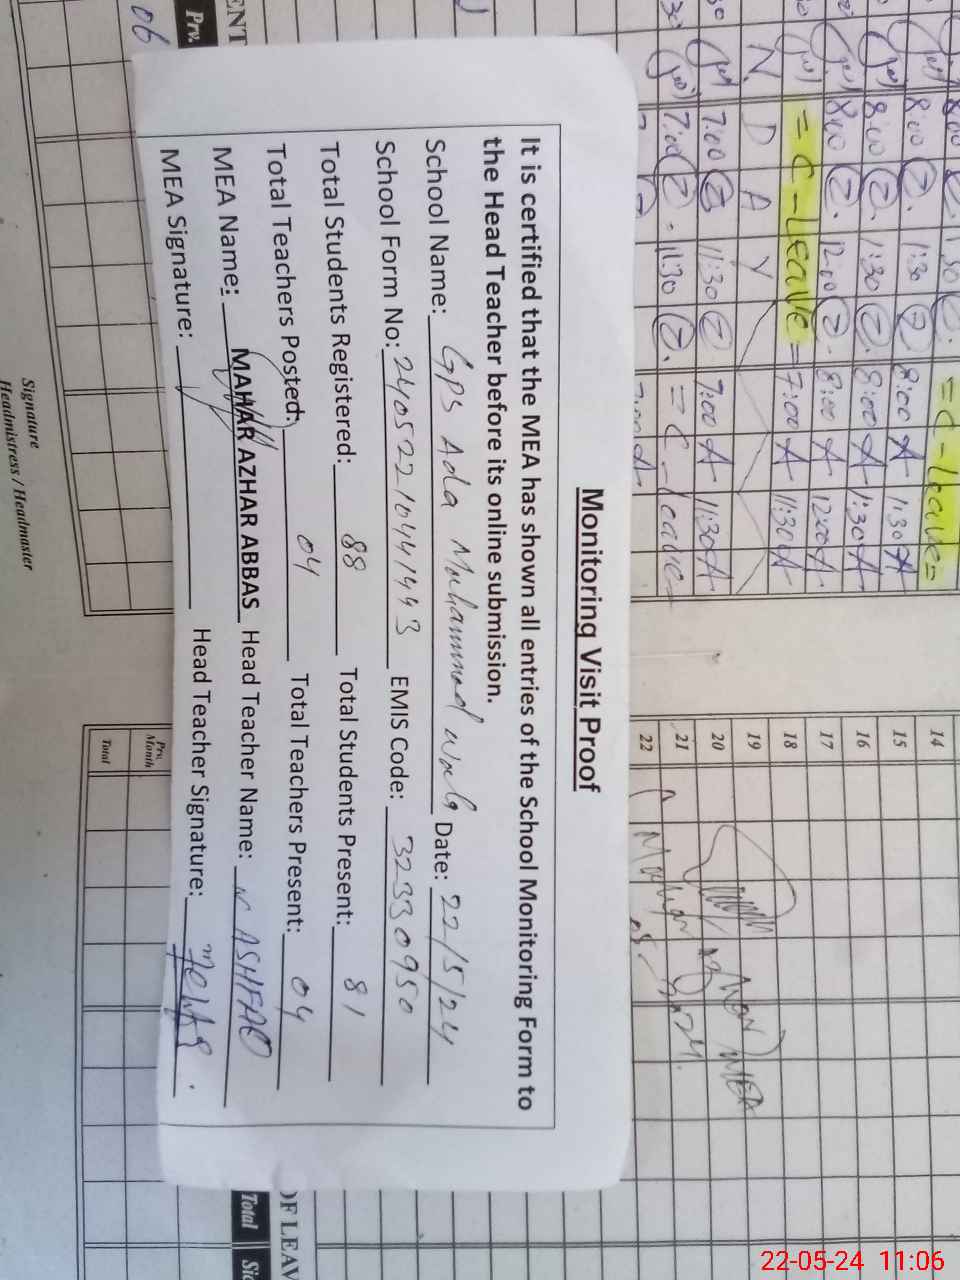 Monitoring Visit Proof
It is certified that the MEA has shown all entries of the School Monitoring Form to
the Head Teacher before its online submission.
School Name: GPS Ada Muhammad Wala Date: 22/5/24
School Form No: 240522104414493 EMIS Code: 32330950
Total Students Registered: 88 Total Students Present: 81
Total Teachers Posted: 04 Total Teachers Present: 04
MEA Name: MAHAR AZHAR ABBAS Head Teacher Name: ASHFAQ
MEA Signature: Head Teacher Signature:
= C - Leave =
8:00 1:30 8:00 A 1:30 A
8:00 1:30 8:00 A 1:30 A
8:00 12:00 8:00 A 12:00 A
= C - Leave = 7:00 A 11:30 A
N D A Y
7:00 11:30 7:00 A 11:30 A
7:00 11:30 = C - Leave =
14
15
16
17
18
19
20
21
22
Prv. Month
Total
ENT
Prv.
06
OF LEAV
Total
Signature
Headmistress / Headmaster
22-05-24 11:06